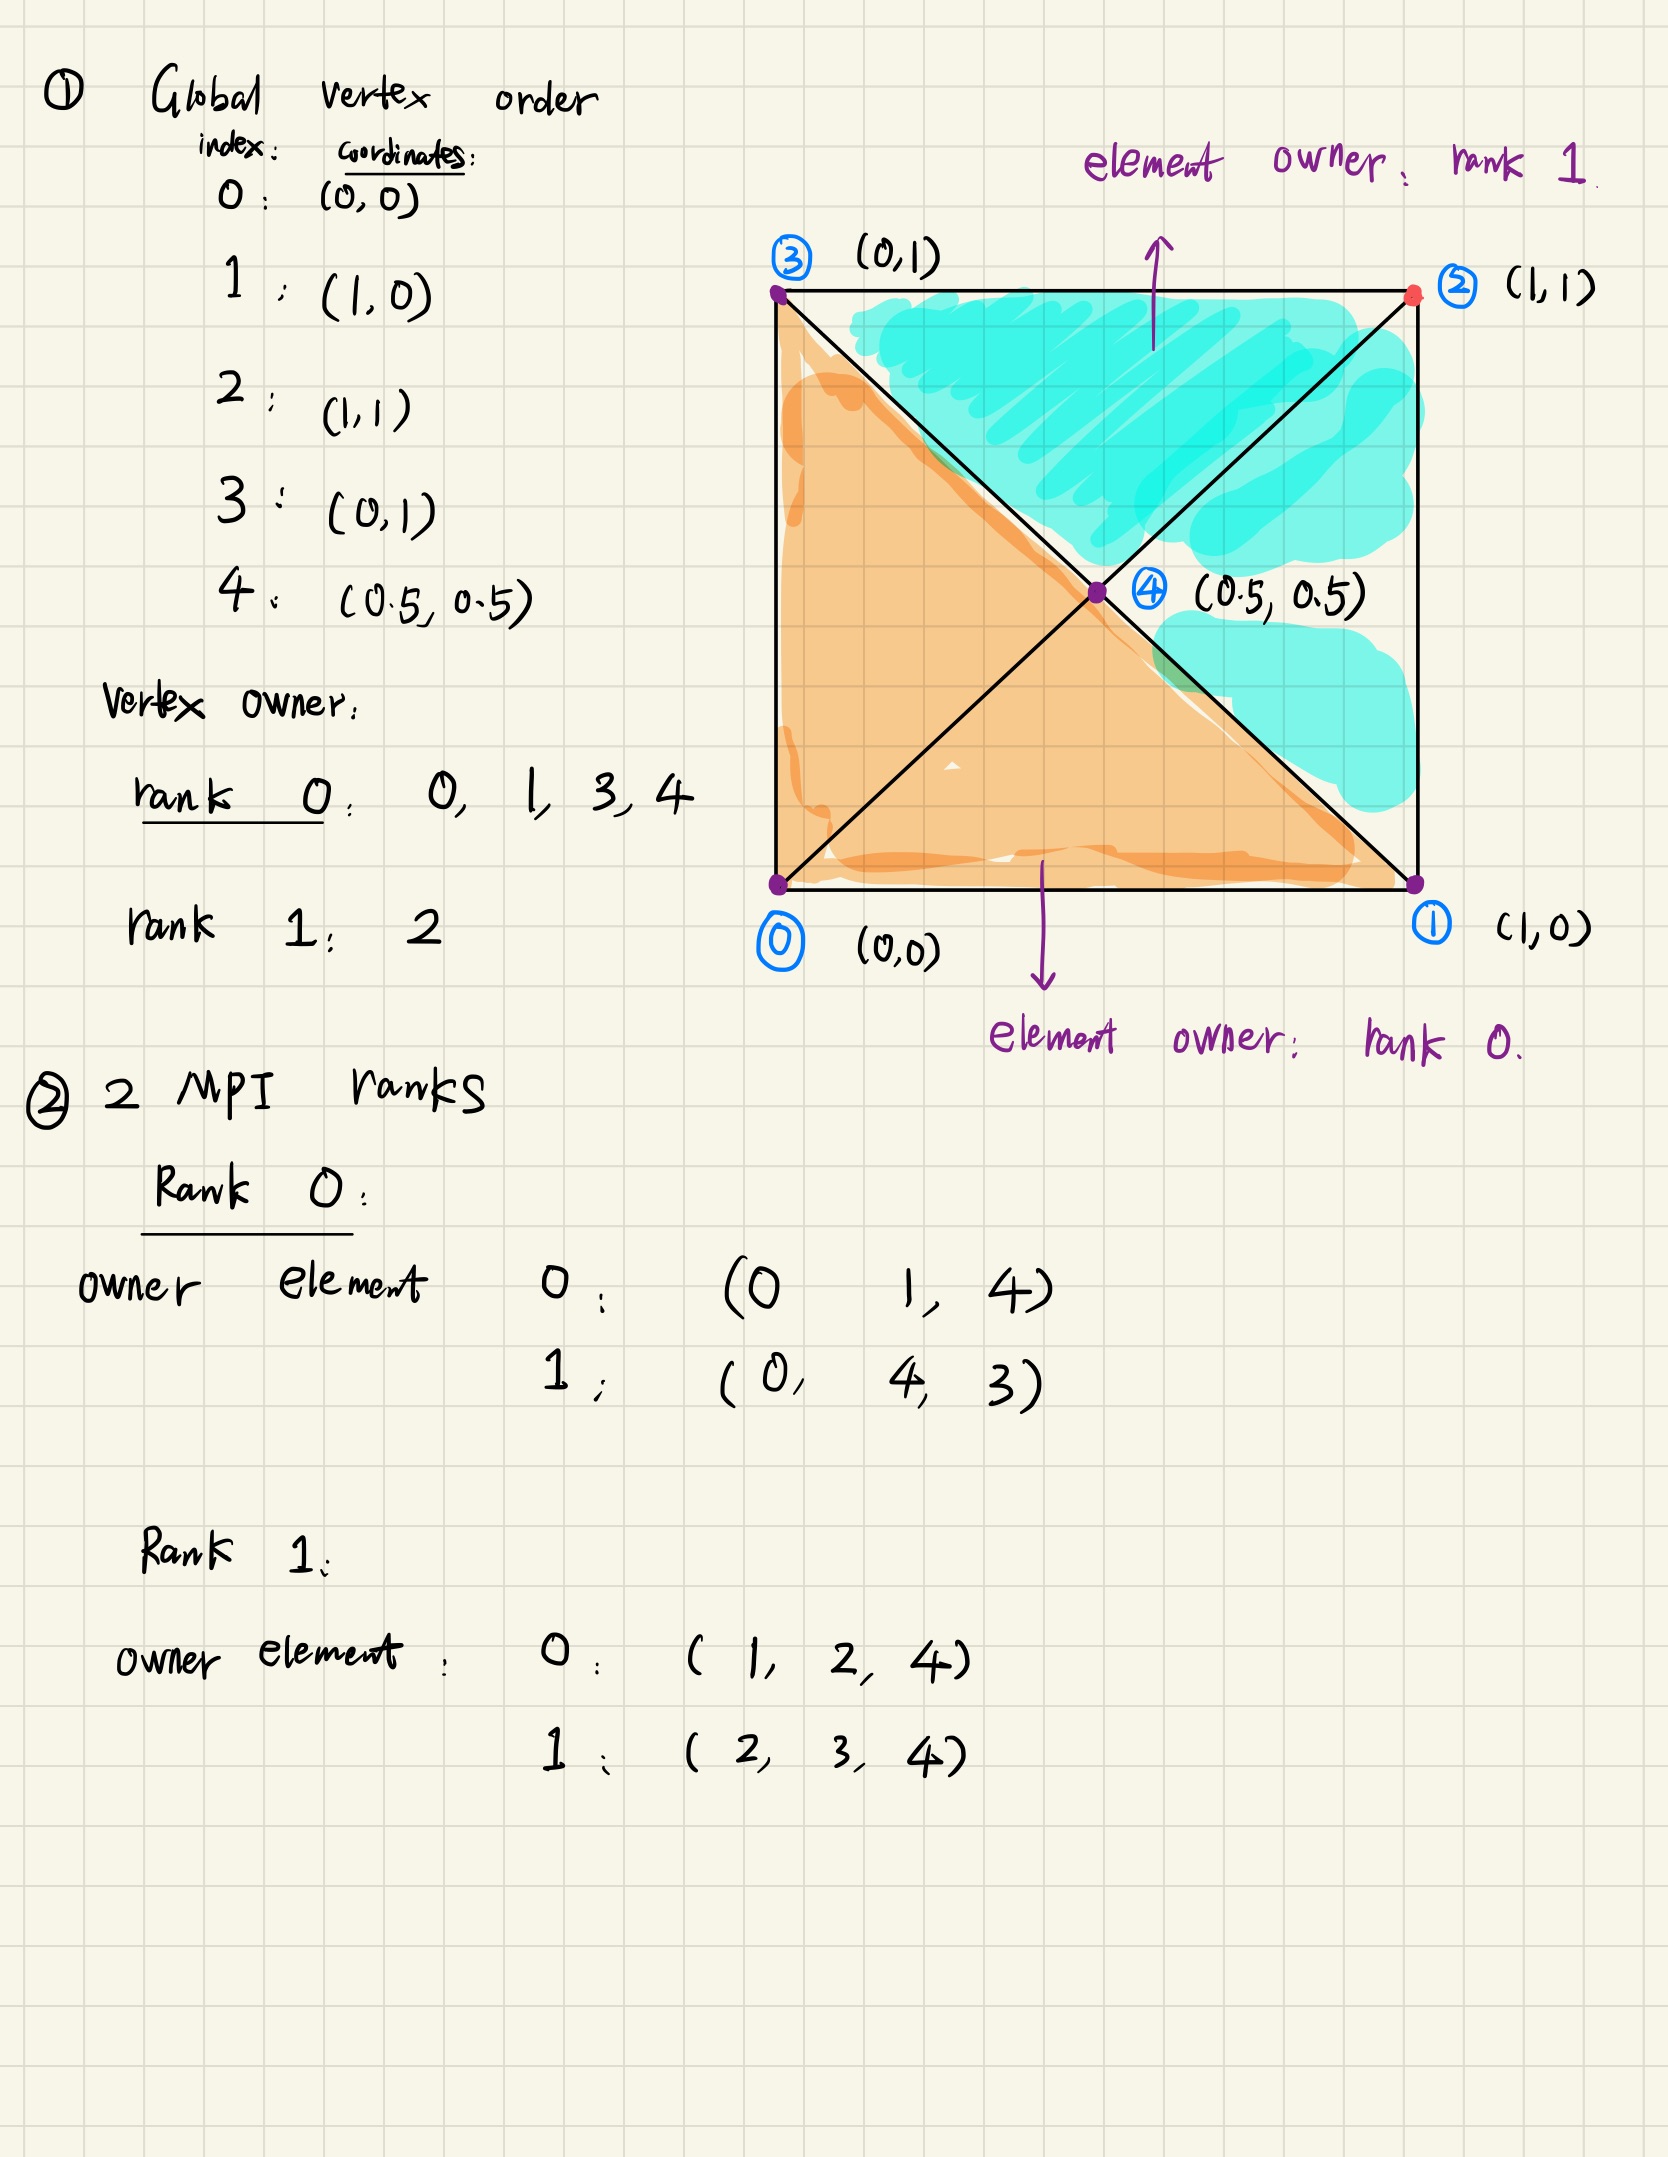 ① Global vertex order
index: coordinates:
0: (0,0)
1: (1,0)
2: (1,1)
3: (0,1)
4: (0.5, 0.5)
Vertex owner:
rank 0: 0, 1, 3, 4
rank 1: 2
element owner: rank 1.
③ (0,1)
② (1,1)
④ (0.5, 0.5)
⓪ (0,0)
① (1,0)
element owner: rank 0.
② 2 MPI ranks
Rank 0:
owner element 0: (0 1, 4)
1: (0, 4, 3)
Rank 1:
owner element: 0: (1, 2, 4)
1: (2, 3, 4)